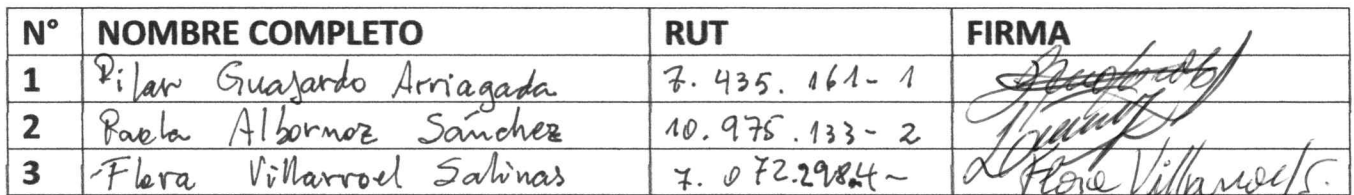 N° NOMBRE COMPLETO RUT FIRMA
1 Pilar Guajardo Arriagada 7.435.161-1
2 Paola Albornoz Sánchez 10.975.133-2
3 Flora Villarroel Salinas 7.072.298.4- Flora Villarroel S.